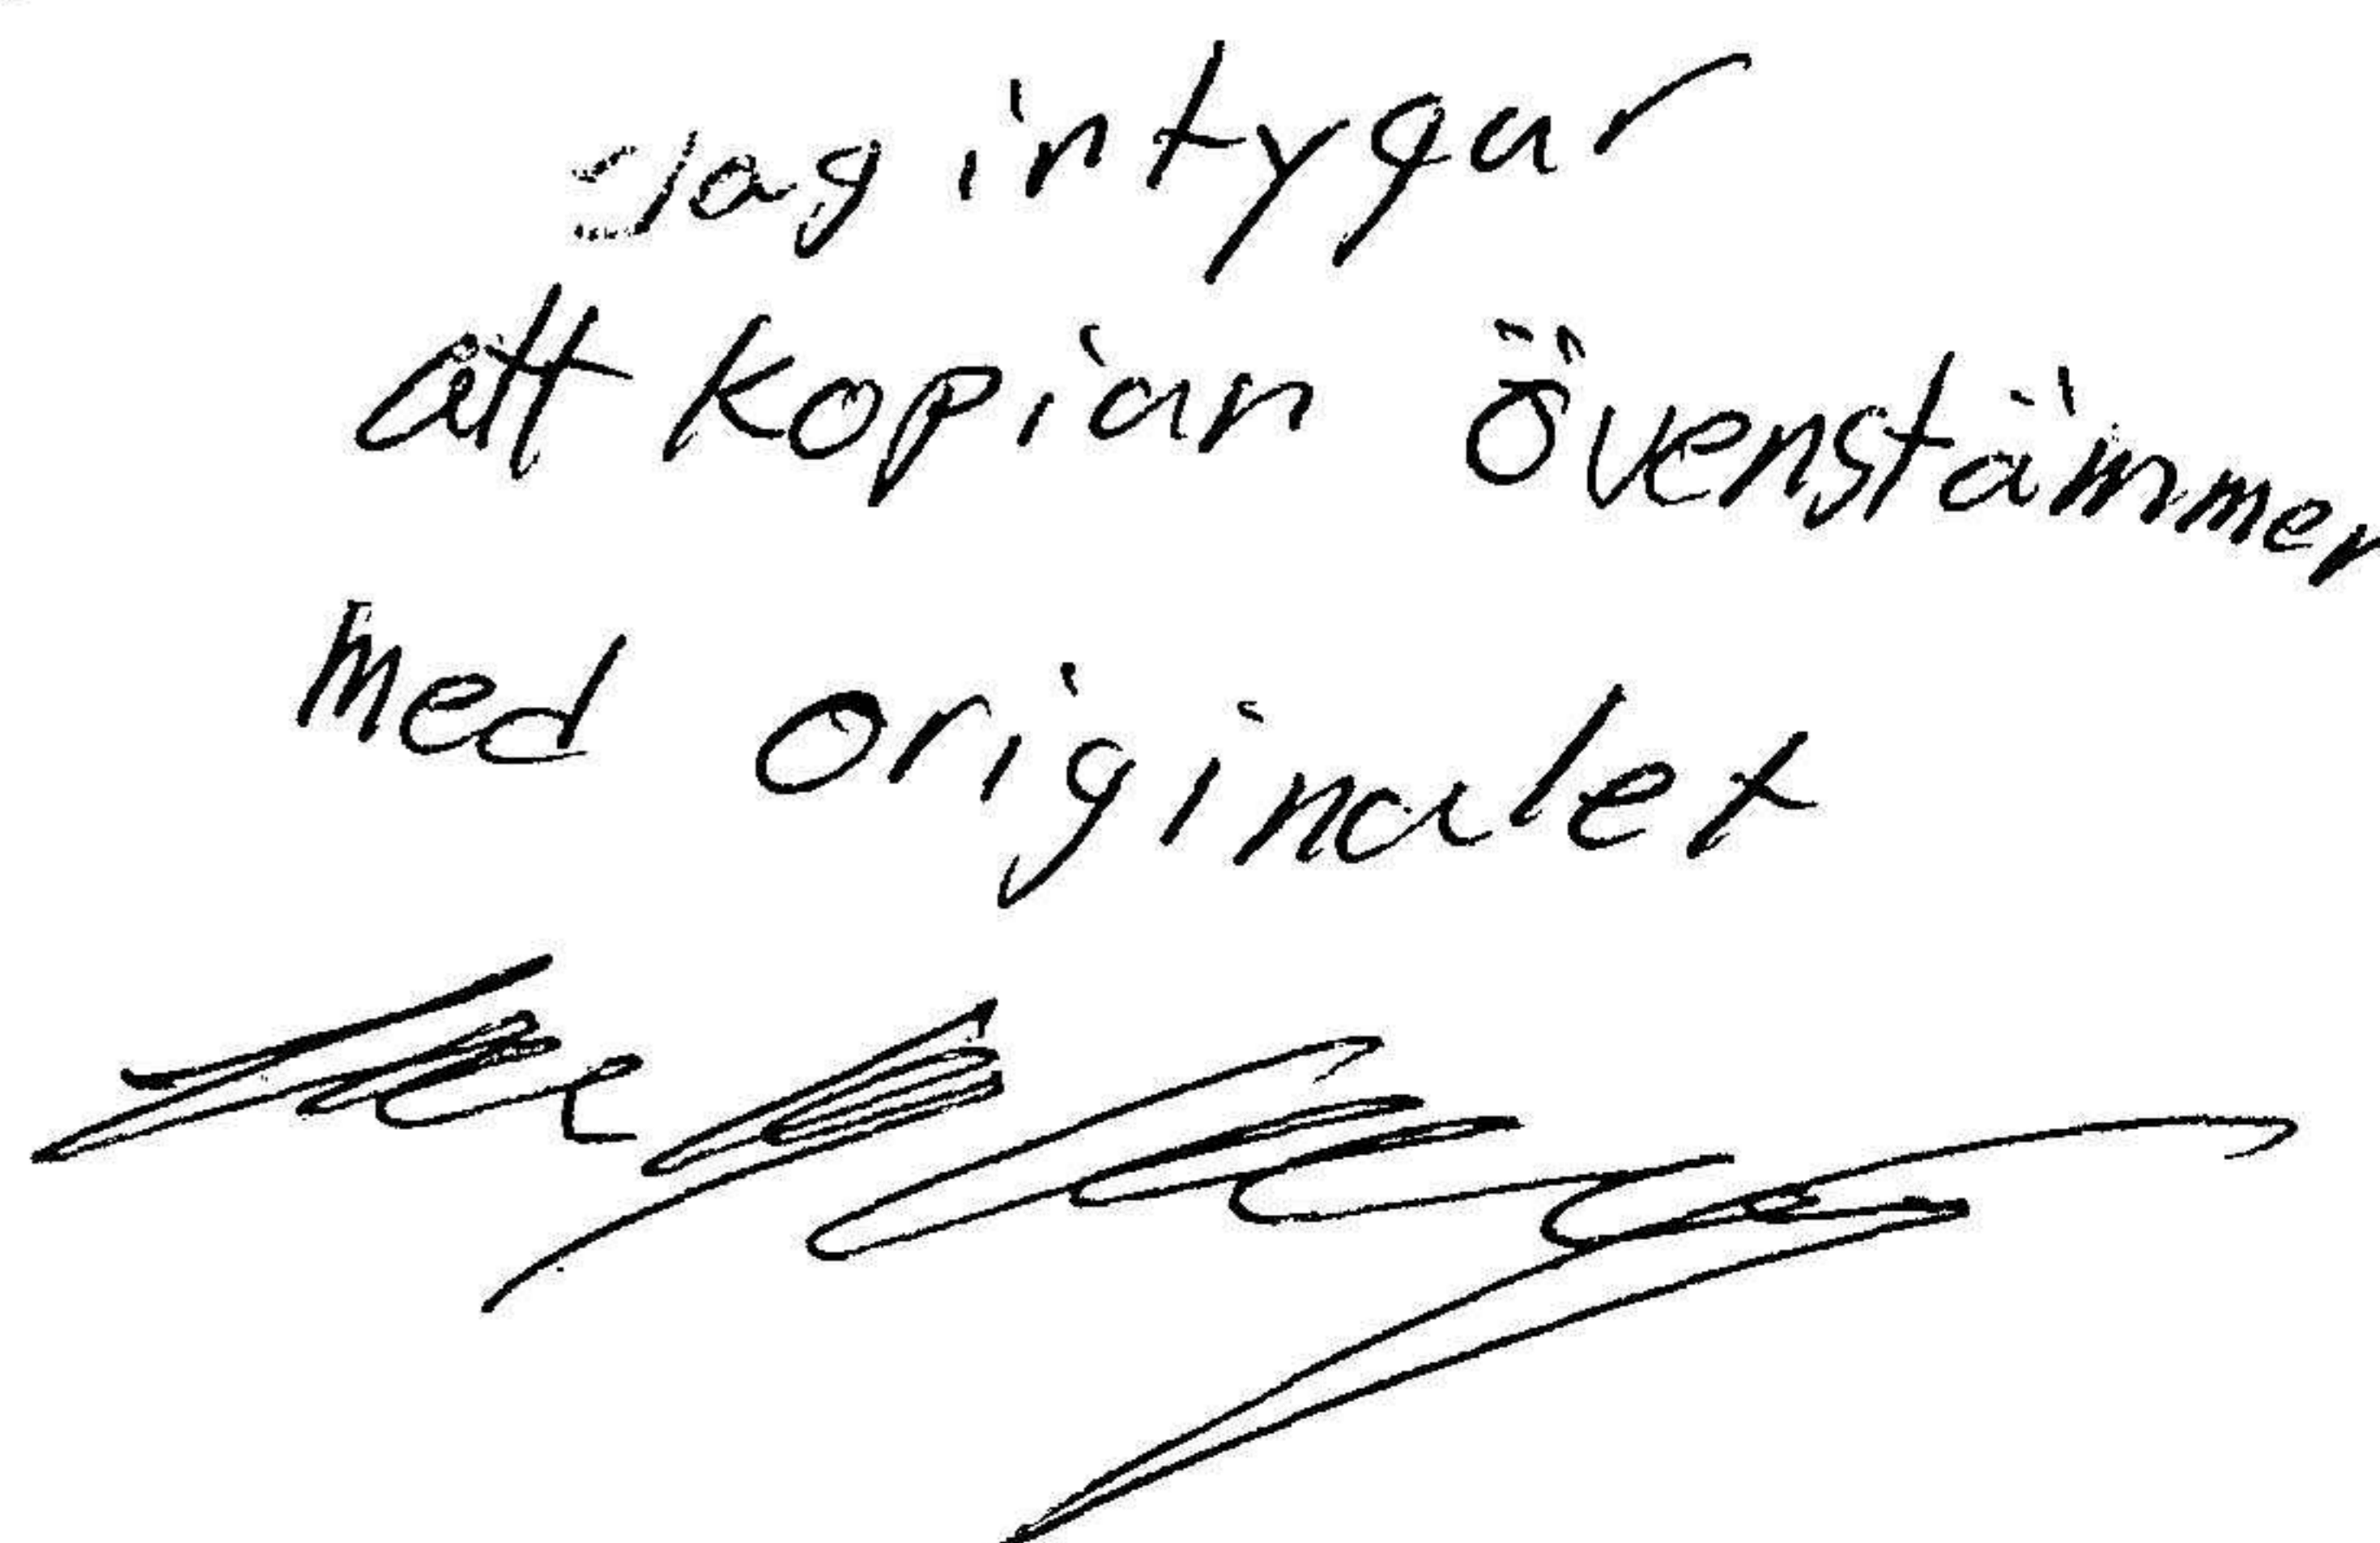 Jag intygar
att kopian övenstämmer
med originalet